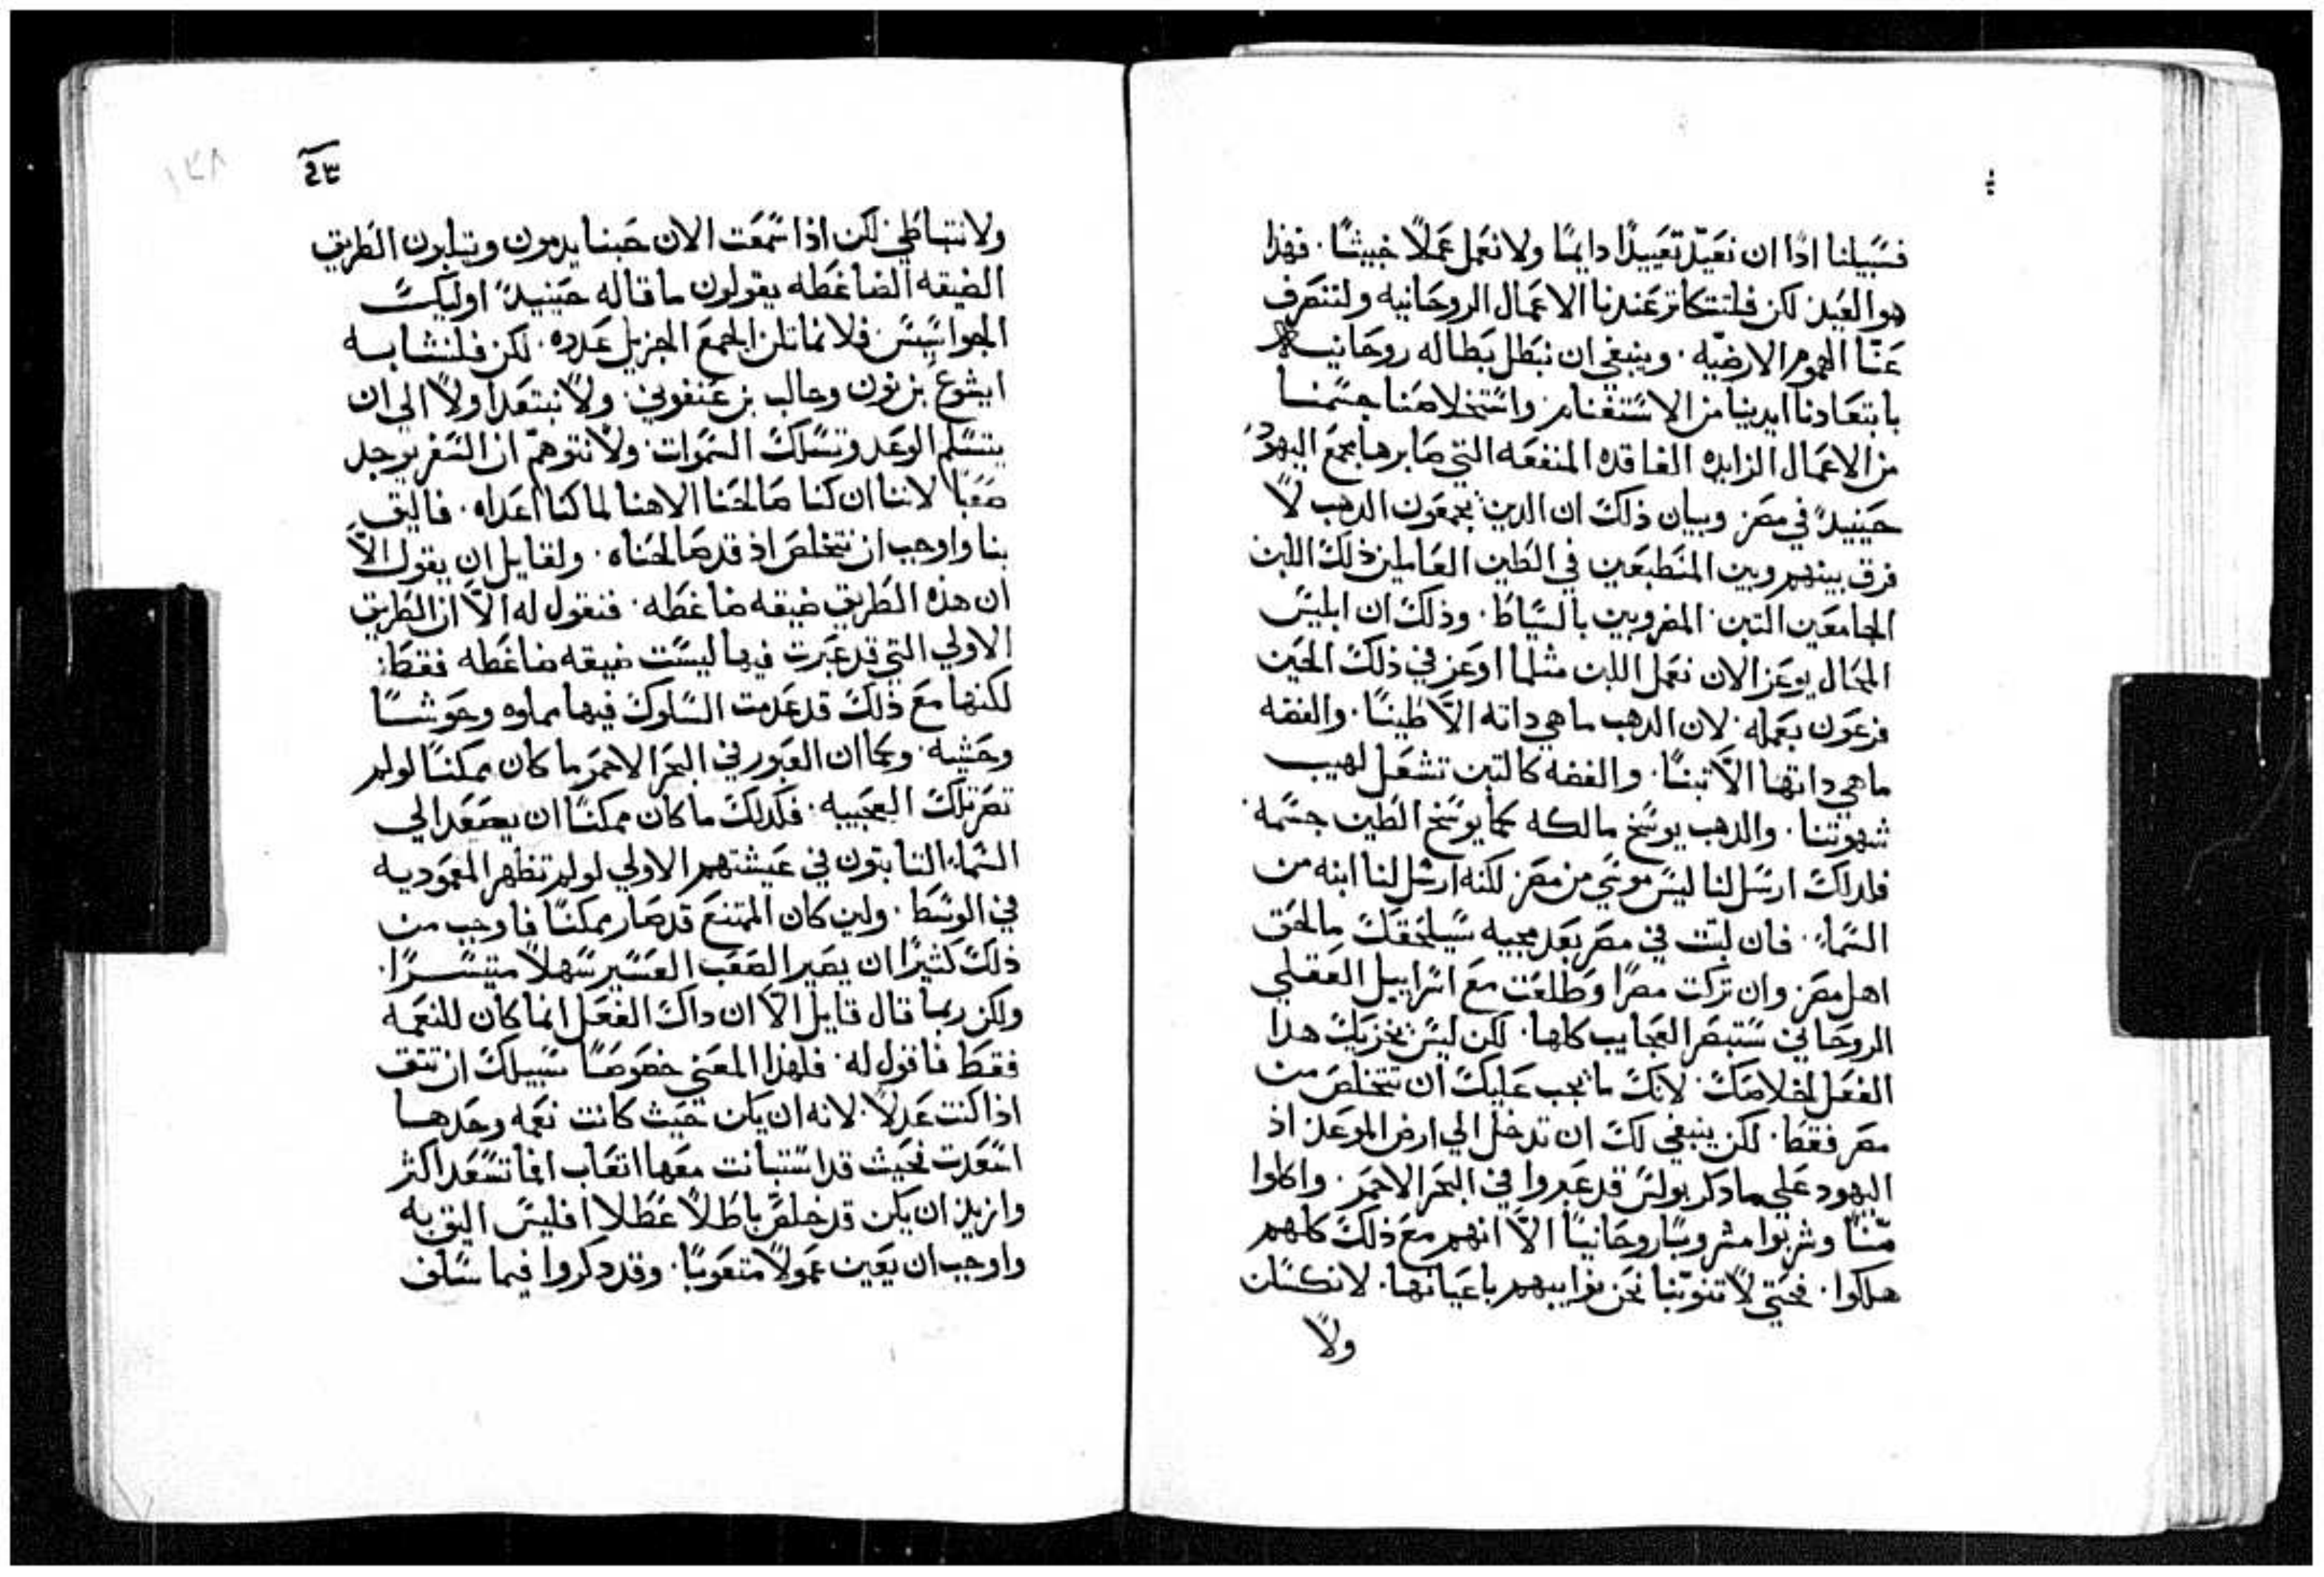 فسبيلنا اذًا ان نعيّد تعييدًا دايمًا ولا نعمل عملاً خبيثًا. فهذا
هو العيد لكن فلتتكاثر عندنا الاعمال الروحانيه ولتنصرف
عنّا الهموم الارضيّه. وينبغي ان نبطل بطاله روحانيه
بابتعادنا ايدينا من الاستغنام واستخلاصنا جسمنا
من الاعمال الزايده الفاقده المنفعه التي صابرها مجمع اليهود
حينيدٍ في مصر وبيان ذلك ان الدين يجمعون الدهب لا
فرق بينهم وبين المنطبعين في الطين العاملين ذلك اللبن
الجامعين التبن المضروبين بالسياط. وذلك ان ابليس
المحال يوعز الان نعمل اللبن مثلما اوعز في ذلك الحين
فرعون بعمله. لان الدهب ما هي داته الاّ طينًا. والفضه
ما هي داتها الاّ تبنًا. والفضه كالتبن تشعل لهيب
شهوتنا. والدهب يوسّخ مالكه كما يوسّخ الطين جسمه
فلدلك ارسل لنا ليس موسي من مصر لكنه ارسل لنا ابنه من
السماء. فان لبثت في مصر بعد مجيه سيلحقك ما لحق
اهل مصر وان تركت مصرًا وطلعت مع اسراييل العقلي
الروحاني ستبصر العجايب كلها. لكن ليس يجزيك هدا
الفعل لخلاصك. لانك ما يجب عليك ان تتخلص من
مصر فقط. لكن ينبغي لك ان تدخل الي ارض الموعد اذ
اليهود علي ما دكر بولس قد عبروا في البحر الاحمر. واكلوا
منًّا وشربوا مشروبًا روحانيًا الاّ انهم مع ذلك كلهم
هلكوا. فحتي لا تنوبنا نحن نوايبهم باعيانها. لا نكسلن
ولا
٤٣
ولا نتباطي لكن اذا سمعت الان حبنا يدمون ويتلبون الطريق
الضيقه الضاغطه يقولون ما قاله حينيدٍ اوليك
الجواسيس فلا نماثلن الجمع الجزيل عدده. لكن فلنشابه
ايشوع بن نون وحالب بن عنفوني. ولا نبتعد اولاً الي ان
يتسلم الوعد وتسلك السموات. ولا نتوهّم ان السفر يوجد
صعبًا لاننا ان كنا صالحنا الاهنا لما كنا اعداه. فاليق
بنا واوجب ان نتخلص اذ قد صالحناه. ولقايل ان يقول الاّ
ان هذه الطريق ضيقه ضاغطه. فنقول له الاّ ان الطريق
الاولي التي قد عبرت فيها ليست ضيقه ضاغطه فقط
لكنها مع ذلك قد عدمت السلوك فيها مملوه وحوشًا
وحشيه. وكما ان العبور في البحر الاحمر ما كان ممكنًا لو لم
تصر تلك العجيبه. فكدلك ما كان ممكنًا ان يصعد الي
السماء الثابتون في عيشتهم الاولي لو لم تظهر المعموديه
في الوسط. ولين كان الممتنع قد صار ممكنًا فاوجب من
ذلك كثيرًا ان يصير الصعب العسير سهلاً متيسرًا.
ولكن ربما قال قايل الاّ ان داك الفعل انما كان للنعمه
فقط فاقول له. فلهذا المعني خصوصًا سبيلك ان تثق
اذا كنت عدلاً. لانه ان يكن حيث كانت نعمه وحدها
اسعدت فحيث قد استبانت معها اتعاب افما تسعد اكثر
وازيد ان يكن قد خلص باطلاً عطلاً افليس اليق به
واوجب ان يعين عمولاً متعوبًا. وقد دكروا فيما سلف